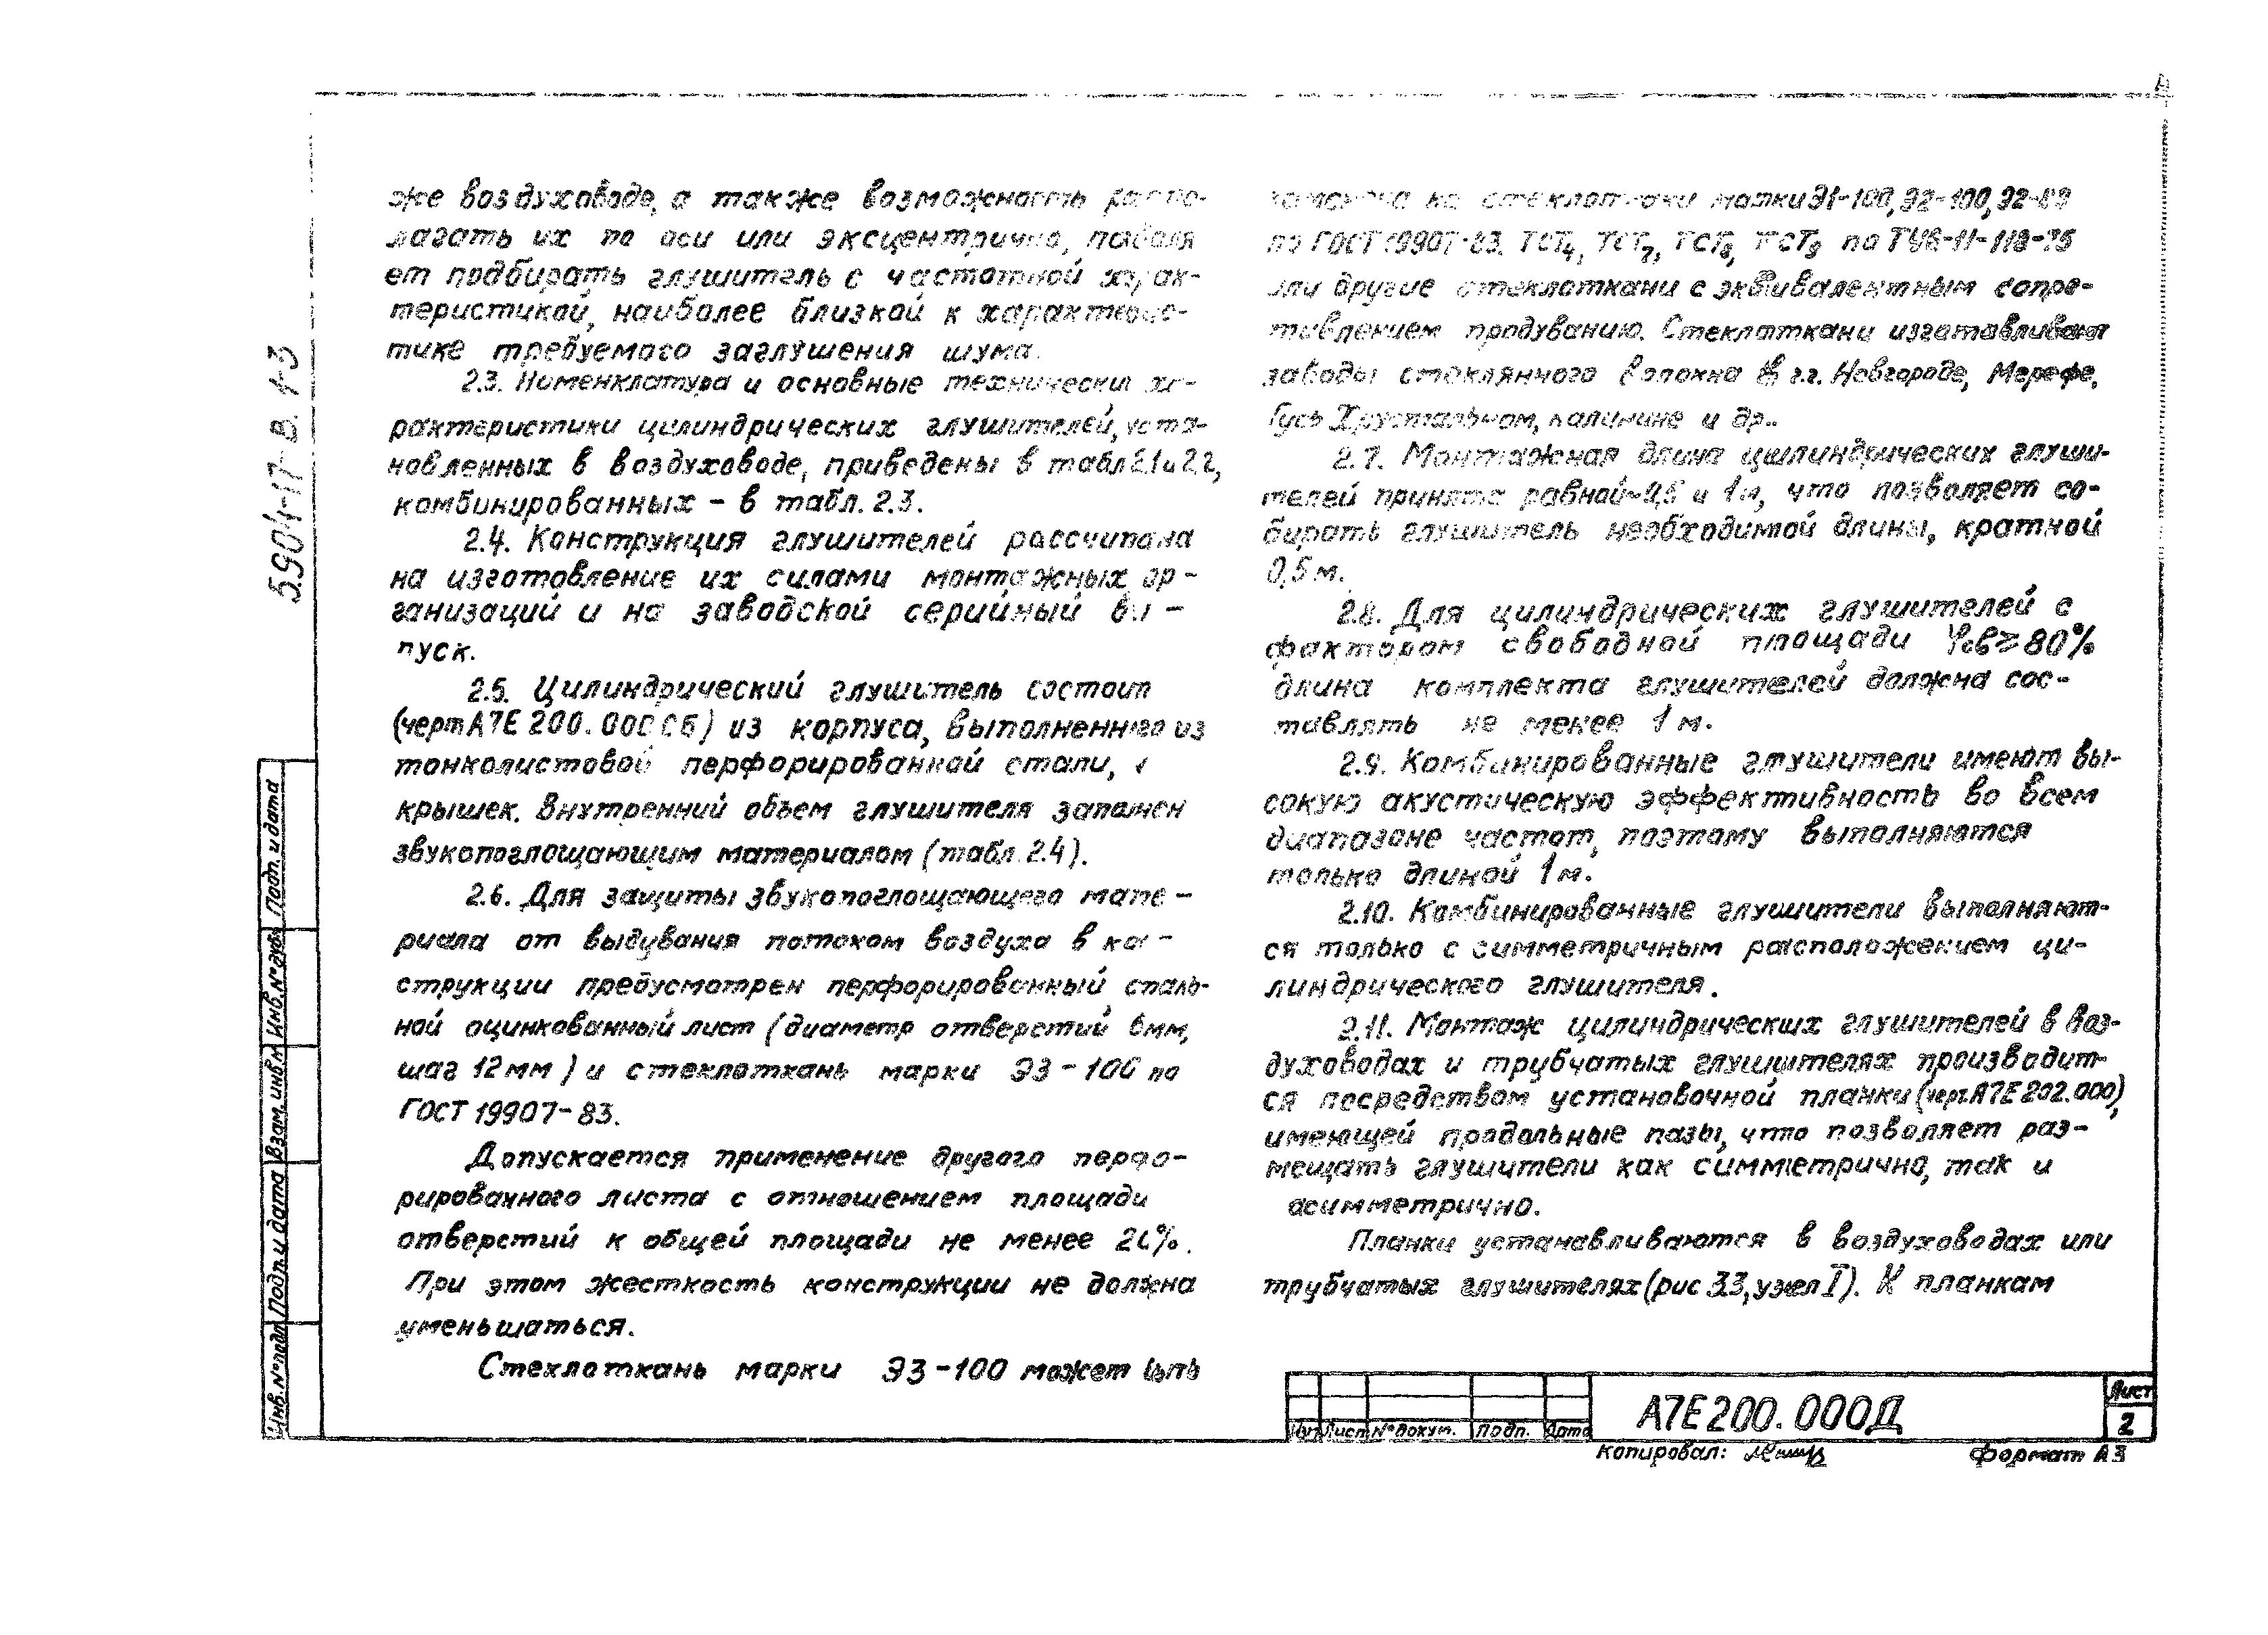 же воздуховоде, а также возможность распо-
лагать их по оси или эксцентрично, позволя
ет подбирать глушитель с частотной харак-
теристикой, наиболее близкой к характерис-
тике требуемого заглушения шума.
2.3. Номенклатура и основные технически ха-
рактеристики цилиндрических глушителей, уста-
новленных в воздуховоде, приведены в табл 2.1 и 2.2,
комбинированных - в табл. 2.3.
2.4. Конструкция глушителей рассчитана
на изготовление их силами монтажных ор-
ганизаций и на заводской серийный вы-
пуск.
2.5. Цилиндрический глушитель состоит
(черт А7Е 200.000 СБ) из корпуса, выполненного из
тонколистовой перфорированной стали, и
крышек. Внутренний объем глушителя заполнен
звукопоглощающим материалом (табл. 2.4).
2.6. Для защиты звукопоглощающего мате-
риала от выдувания потоком воздуха в кон-
струкции предусмотрен перфорированный сталь-
ной оцинкованный лист (диаметр отверстий 6мм,
шаг 12 мм) и стеклоткань марки ЭЗ-100 по
ГОСТ 19907-83.
Допускается применение другого перфо-
рированного листа с отношением площади
отверстий к общей площади не менее 20%.
При этом жесткость конструкции не должна
уменьшаться.
Стеклоткань марки ЭЗ-100 может быть
заменена на стеклоткани марки Э1-100, Э2-100, Э2-80
по ГОСТ 19907-83. ТСТ4, ТСТ7, ТСТ8, ТСТ9 по ТУ6-11-118-75
или другие стеклоткани с эквивалентным сопро-
тивлением продуванию. Стеклоткани изготавливают
заводы стеклянного волокна в г.г. Новгороде, Мерефе,
Гусь Хрустальном, Калинине и др..
2.7. Монтажная длина цилиндрических глуши-
телей принята равной ~0,5 и 1м, что позволяет со-
бирать глушитель необходимой длины, кратной
0,5 м.
2.8. Для цилиндрических глушителей с
фактором свободной площади φсв ≥ 80%
длина комплекта глушителей должна сос-
тавлять не менее 1 м.
2.9. Комбинированные глушители имеют вы-
сокую акустическую эффективность во всем
диапазоне частот, поэтому выполняются
только длиной 1 м.
2.10. Комбинированные глушители выполняют-
ся только с симметричным расположением ци-
линдрического глушителя.
2.11. Монтаж цилиндрических глушителей в воз-
духоводах и трубчатых глушителях производит-
ся посредством установочной планки (черт. А7Е 202.000),
имеющей продольные пазы, что позволяет раз-
мещать глушители как симметрично, так и
асимметрично.
Планки устанавливаются в воздуховодах или
трубчатых глушителях (рис 3.3, узел I). К планкам
5.904-17 В. 1-3
Подп. и дата
Инв. № дубл
Взам. инв. №
Подп. и дата
Инв. № подл
Лист
№ докум.
Подп.
Дата
А7Е 200.000Д
Лист
2
Копировал:
Формат А3